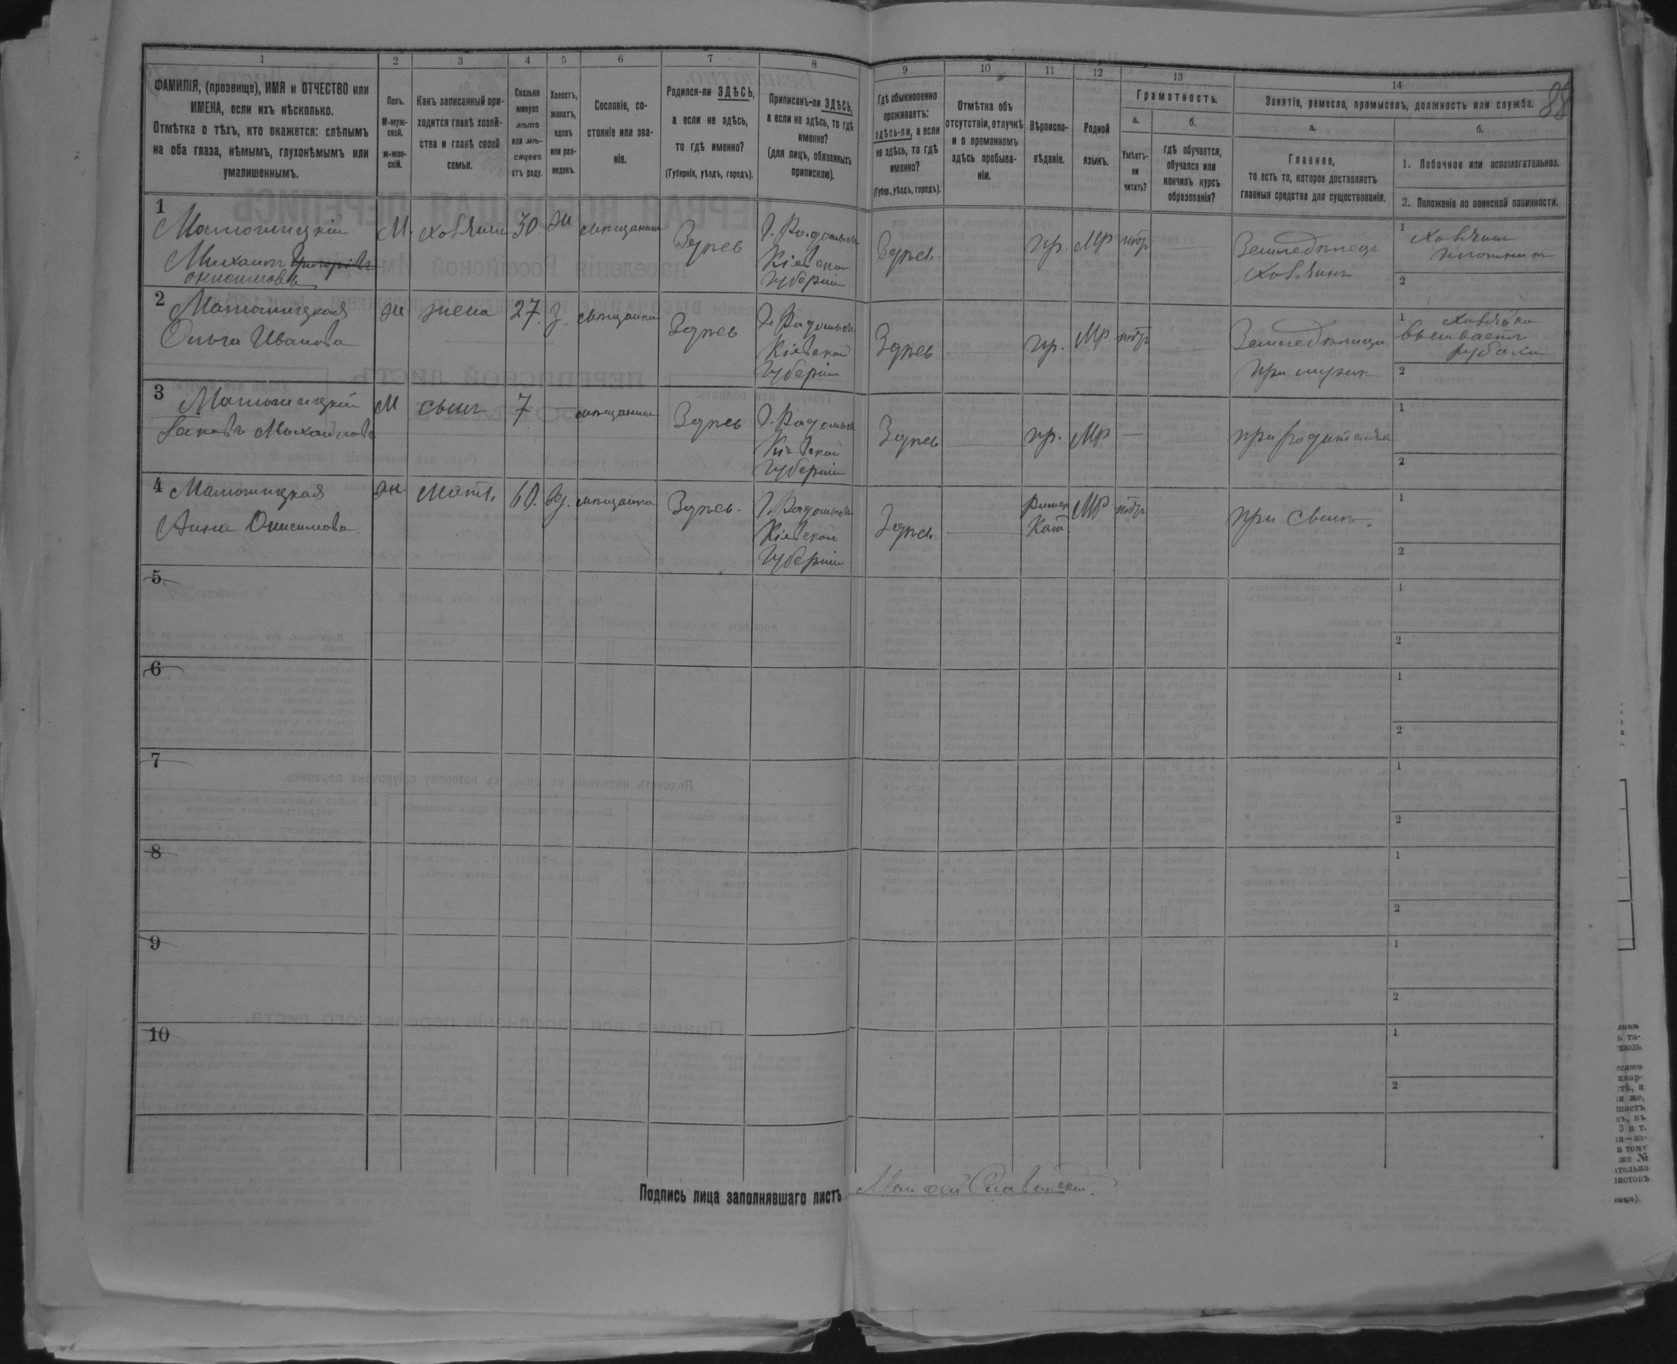 1 2 3 4 5 6 7 8 9 10 11 12 13 14
88
ФАМИЛІЯ, (прозвище), ИМЯ и ОТЧЕСТВО или
ИМЕНА, если ихъ нѣсколько.
Отмѣтка о тѣхъ, кто окажется: слѣпымъ
на оба глаза, нѣмымъ, глухонѣмымъ или
умалишеннымъ.
Полъ.
М-муж-
ской.
Ж-жен-
скій.
Какъ записанный при-
ходится главѣ хозяй-
ства и главѣ своей
семьи.
Сколько
минуло
лѣтъ
или мѣ-
сяцевъ
отъ роду.
Холостъ,
женатъ,
вдовъ
или раз-
веденъ.
Сословіе, со-
стояніе или зва-
ніе.
Родился-ли ЗДѢСЬ,
а если не здѣсь,
то гдѣ именно?
(Губернія, уѣздъ, городъ).
Приписанъ-ли ЗДѢСЬ,
а если не здѣсь, то гдѣ
именно?
(для лицъ, обязанныхъ
припискою).
Гдѣ обыкновенно
проживаетъ:
здѣсь-ли, а если
не здѣсь, то гдѣ
именно?
(Губер., уѣздъ, городъ).
Отмѣтка объ
отсутствіи, отлучкѣ
и о временномъ
здѣсь пребыва-
ніи.
Вѣроиспо-
вѣданіе.
Родной
языкъ.
Грамотность.
а.
Умѣетъ-
ли
читать?
б.
гдѣ обучается,
обучался или
кончилъ курсъ
образованія?
Занятіе, ремесло, промыселъ, должность или служба.
а.
Главное,
то есть то, которое доставляетъ
главныя средства для существованія.
б.
1. Побочное или вспомогательное.
2. Положеніе по воинской повинности.
1
Михаилъ Григорьевъ
Онисимовъ
М. хозяинъ 30. ж мѣщанинъ Здѣсь
Г. Радомысль
Кіевской
Губерніи
Здѣсь пр. МР нѣтъ
Земледѣлецъ
хозяинъ
1
2
2
Ольга Иванова
ж жена 27. З. мѣщанка Здѣсь
Г. Радомысль
Кіевской
Губерніи
Здѣсь пр. МР нѣтъ
при мужѣ
1
вышиваетъ
рубахи
2
3
Яковъ Михайловъ
М сынъ 7 мѣщанинъ Здѣсь
Г. Радомысль
Кіевской
Губерніи
Здѣсь пр. МР —
1
2
4
Анна Онисимова
ж мать 60. Вд. мѣщанка Здѣсь.
Г. Радомысль
Кіевской
Губерніи
Здѣсь
Римск
Кат.
МР нѣтъ
при сынѣ.
1
2
5
1
2
6
1
2
7
1
2
8
1
2
9
1
2
10
1
2
Подпись лица заполнявшаго листъ